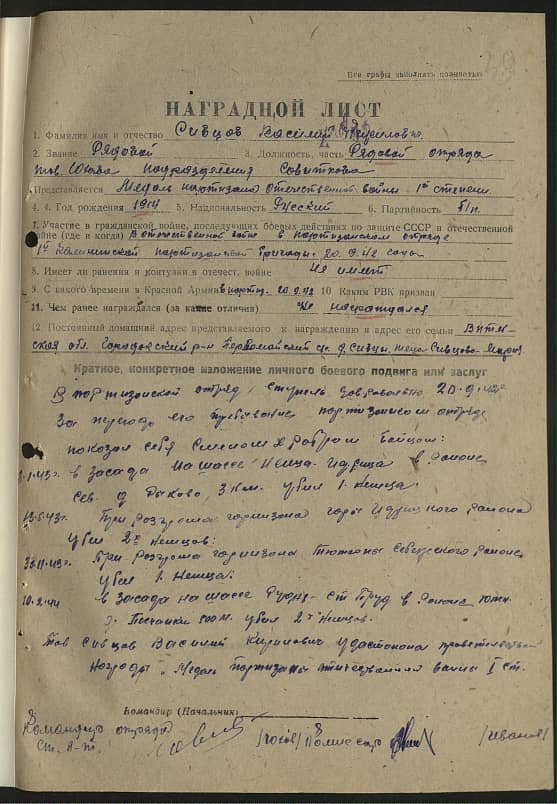 Все графы заполнять полностью
НАГРАДНОЙ ЛИСТ
1. Фамилия имя и отчество Сивцов Василий
2. Звание Рядовой 3. Должность, часть Рядовой отряда
тов.
Представляется Медаль партизана отечественной войны - 1й степени
4. 4. Год рождения 1914 5. Национальность Русский 6. Партийность б/п.
7. Участие в гражданской войне, последующих боевых действиях по защите СССР и отечественной
войне (где и когда) В отечественной войне в партизанском отряде
1й Калининской партизанской бригады. 20.9.42 года
8. Имеет ли ранения и контузии в отечест. войне Не имеет
9. С какого времени в Красной Армии в партиз. 20.9.42 10 Каким РВК призван
11. Чем ранее награждался (за какие отличия) Не награждался
12 Постоянный домашний адрес представляемого к награждению и адрес его семьи
ская обл. р-н Первомайский д. Сивцы
Краткое, конкретное изложение личного боевого подвига или заслуг
В партизанский отряд добровольно 20-9-42г
За период его пребывания в партизанском отряде
показал себя смелым и храбрым бойцом:
43г. в засаде на шоссе Идрица в районе
сев. д. Рыково, 3 км. убил 1. немца.
13.5.43г. При разгроме гарнизона Идрицкого района
убил 2х немцев:
43г. При разгроме гарнизона Себежского района
убил 1 немца:
10.2.44 в засаде на шоссе ст. в районе южн.
500 м. убил 2х немцев.
Тов Сивцов Василий Кириллович удостоен правительственной
награды „Медаль партизаны отечественная войны I ст.
Командир (Начальник)
Командир отряда Комиссар /Иванов/